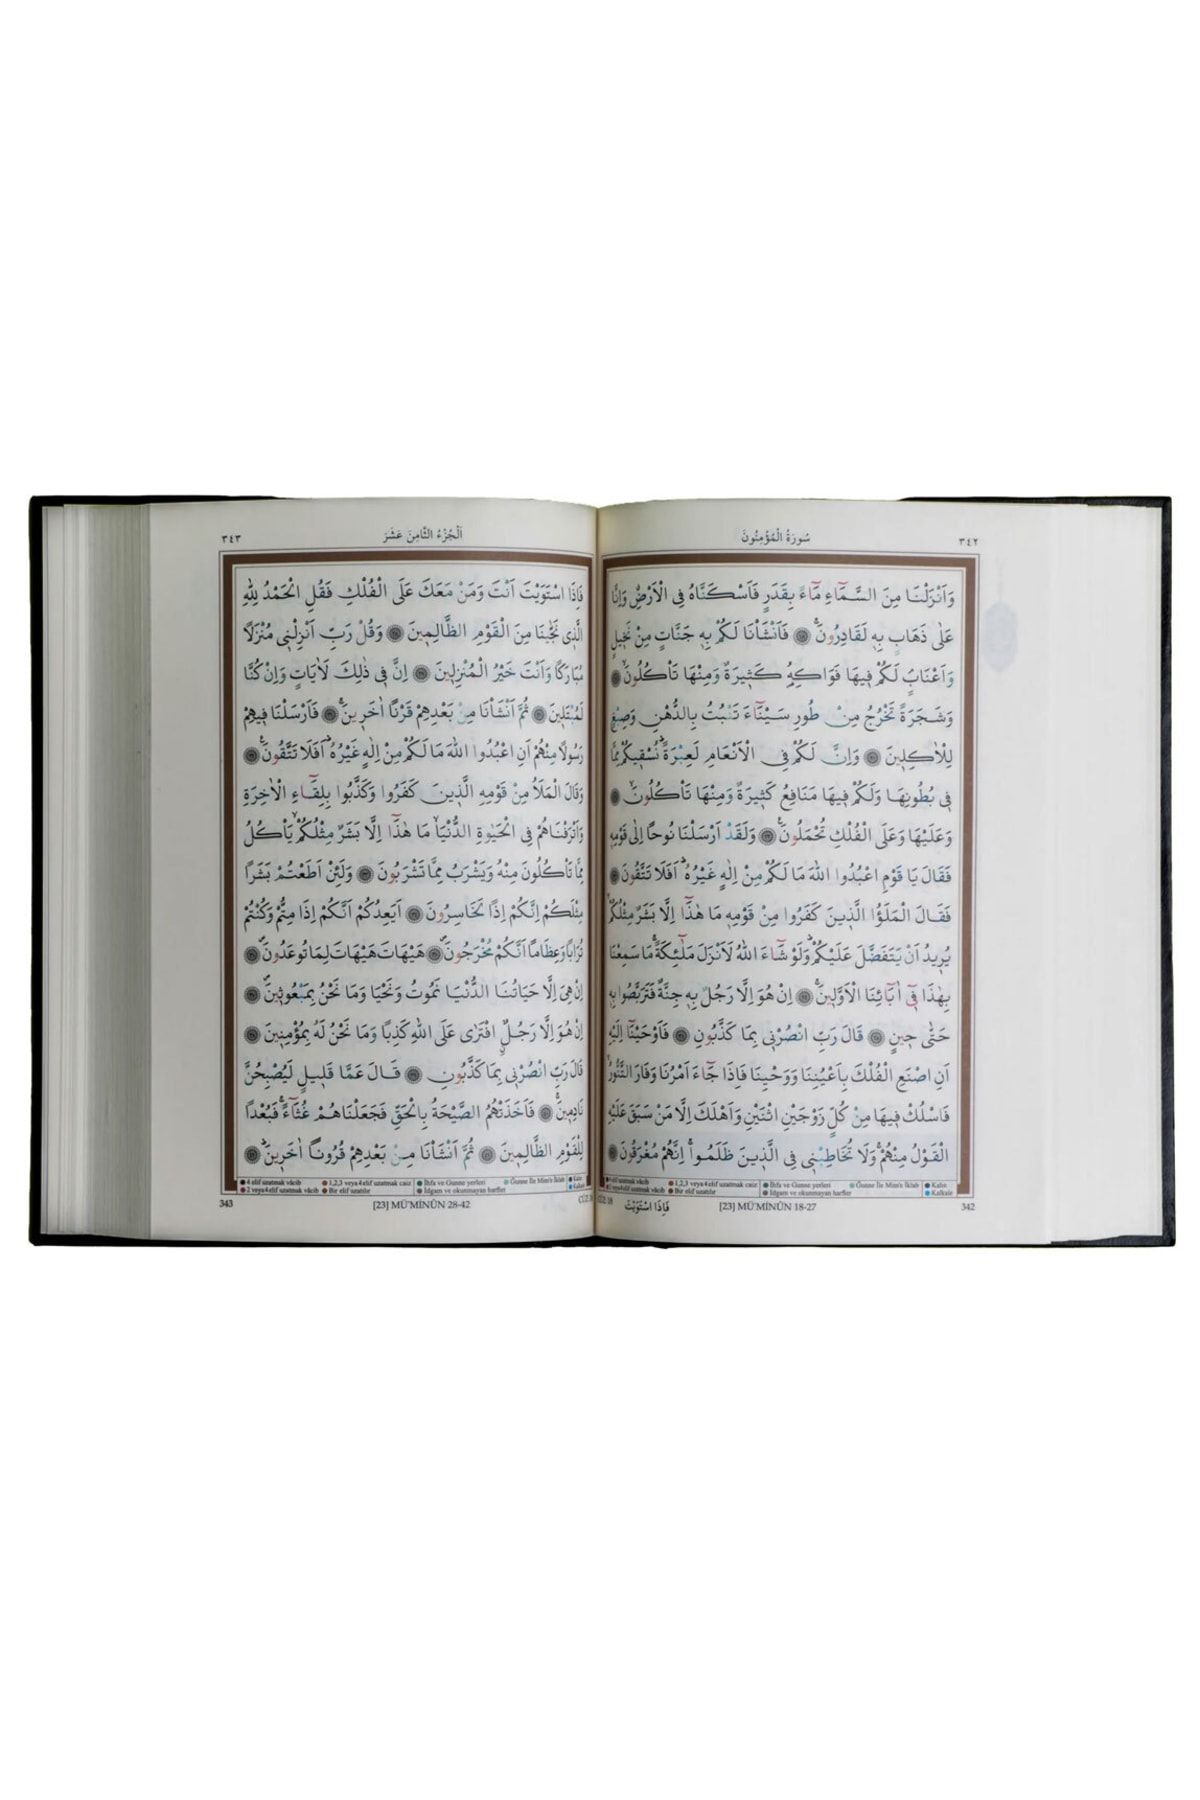 ٣٤٢
سُورَةُ الْمُؤْمِنُونَ
وَاَنْزَلْنَا مِنَ السَّمَٓاءِ مَٓاءً بِقَدَرٍ فَاَسْكَنَّاهُ فِي الْاَرْضِۗ وَاِنَّا
عَلٰى ذَهَابٍ بِه۪ لَقَادِرُونَۚ فَاَنْشَأْنَا لَكُمْ بِه۪ جَنَّاتٍ مِنْ نَخ۪يلٍ
وَاَعْنَابٍۢ لَكُمْ ف۪يهَا فَوَاكِهُ كَث۪يرَةٌ وَمِنْهَا تَأْكُلُونَۙ
وَشَجَرَةً تَخْرُجُ مِنْ طُورِ سَيْنَٓاءَ تَنْبُتُ بِالدُّهْنِ وَصِبْغٍ
لِلْاٰكِل۪ينَ وَاِنَّ لَكُمْ فِي الْاَنْعَامِ لَعِبْرَةًۜ نُسْق۪يكُمْ مِمَّا
ف۪ي بُطُونِهَا وَلَكُمْ ف۪يهَا مَنَافِعُ كَث۪يرَةٌ وَمِنْهَا تَأْكُلُونَۙ
وَعَلَيْهَا وَعَلَى الْفُلْكِ تُحْمَلُونَ۟ وَلَقَدْ اَرْسَلْنَا نُوحًا اِلٰى قَوْمِه۪
فَقَالَ يَا قَوْمِ اعْبُدُوا اللّٰهَ مَا لَكُمْ مِنْ اِلٰهٍ غَيْرُهُۜ اَفَلَا تَتَّقُونَ
فَقَالَ الْمَلَؤُا الَّذ۪ينَ كَفَرُوا مِنْ قَوْمِه۪ مَا هٰذَٓا اِلَّا بَشَرٌ مِثْلُكُمْۙ
يُر۪يدُ اَنْ يَتَفَضَّلَ عَلَيْكُمْۜ وَلَوْ شَٓاءَ اللّٰهُ لَاَنْزَلَ مَلٰٓئِكَةًۚ مَا سَمِعْنَا
بِهٰذَا ف۪ٓي اٰبَٓائِنَا الْاَوَّل۪ينَۚ اِنْ هُوَ اِلَّا رَجُلٌ بِه۪ جِنَّةٌ فَتَرَبَّصُوا بِه۪
حَتّٰى ح۪ينٍ قَالَ رَبِّ انْصُرْن۪ي بِمَا كَذَّبُونِ فَاَوْحَيْنَٓا اِلَيْهِ
اَنِ اصْنَعِ الْفُلْكَ بِاَعْيُنِنَا وَوَحْيِنَا فَاِذَا جَٓاءَ اَمْرُنَا وَفَارَ التَّنُّورُۙ
فَاسْلُكْ ف۪يهَا مِنْ كُلٍّ زَوْجَيْنِ اثْنَيْنِ وَاَهْلَكَ اِلَّا مَنْ سَبَقَ عَلَيْهِ
الْقَوْلُ مِنْهُمْۚ وَلَا تُخَاطِبْن۪ي فِي الَّذ۪ينَ ظَلَمُواۚ اِنَّهُمْ مُغْرَقُونَ
4 elif uzatmak vâcib 1,2,3 veya 4 elif uzatmak caiz İhfa ve Gunne yerleri Gunne İle Mim'e İklab Kalın
2 veya 4 elif uzatmak vâcib Bir elif uzatılır İdgam ve okunmayan harfler Kalkale
CÜZ 18 فَاِذَا اسْتَوَيْتَ [23] MÜ'MİNÛN 18-27 342
٣٤٣
اَلْجُزْءُ الثَّامِنَ عَشَرَ
فَاِذَا اسْتَوَيْتَ اَنْتَ وَمَنْ مَعَكَ عَلَى الْفُلْكِ فَقُلِ الْحَمْدُ لِلّٰهِ
الَّذ۪ي نَجّٰينَا مِنَ الْقَوْمِ الظَّالِم۪ينَ وَقُلْ رَبِّ اَنْزِلْن۪ي مُنْزَلًا
مُبَارَكًا وَاَنْتَ خَيْرُ الْمُنْزِل۪ينَ اِنَّ ف۪ي ذٰلِكَ لَاٰيَاتٍ وَاِنْ كُنَّا
لَمُبْتَل۪ينَ ثُمَّ اَنْشَأْنَا مِنْ بَعْدِهِمْ قَرْنًا اٰخَر۪ينَۚ فَاَرْسَلْنَا ف۪يهِمْ
رَسُولًا مِنْهُمْ اَنِ اعْبُدُوا اللّٰهَ مَا لَكُمْ مِنْ اِلٰهٍ غَيْرُهُۜ اَفَلَا تَتَّقُونَ۟
وَقَالَ الْمَلَاُ مِنْ قَوْمِهِ الَّذ۪ينَ كَفَرُوا وَكَذَّبُوا بِلِقَٓاءِ الْاٰخِرَةِ
وَاَتْرَفْنَاهُمْ فِي الْحَيٰوةِ الدُّنْيَاۙ مَا هٰذَٓا اِلَّا بَشَرٌ مِثْلُكُمْۙ يَأْكُلُ
مِمَّا تَأْكُلُونَ مِنْهُ وَيَشْرَبُ مِمَّا تَشْرَبُونَ وَلَئِنْ اَطَعْتُمْ بَشَرًا
مِثْلَكُمْ اِنَّكُمْ اِذًا لَخَاسِرُونَ اَيَعِدُكُمْ اَنَّكُمْ اِذَا مِتُّمْ وَكُنْتُمْ
تُرَابًا وَعِظَامًا اَنَّكُمْ مُخْرَجُونَۖ هَيْهَاتَ هَيْهَاتَ لِمَا تُوعَدُونَۖ
اِنْ هِيَ اِلَّا حَيَاتُنَا الدُّنْيَا نَمُوتُ وَنَحْيَا وَمَا نَحْنُ بِمَبْعُوث۪ينَۖ
اِنْ هُوَ اِلَّا رَجُلٌۨ افْتَرٰى عَلَى اللّٰهِ كَذِبًا وَمَا نَحْنُ لَهُ بِمُؤْمِن۪ينَ
قَالَ رَبِّ انْصُرْن۪ي بِمَا كَذَّبُونِ قَالَ عَمَّا قَل۪يلٍ لَيُصْبِحُنَّ
نَادِم۪ينَۚ فَاَخَذَتْهُمُ الصَّيْحَةُ بِالْحَقِّ فَجَعَلْنَاهُمْ غُثَٓاءًۚ فَبُعْدًا
لِلْقَوْمِ الظَّالِم۪ينَ ثُمَّ اَنْشَأْنَا مِنْ بَعْدِهِمْ قُرُونًا اٰخَر۪ينَۜ
4 elif uzatmak vâcib 1,2,3 veya 4 elif uzatmak caiz İhfa ve Gunne yerleri Gunne İle Mim'e İklab Kalın
2 veya 4 elif uzatmak vâcib Bir elif uzatılır İdgam ve okunmayan harfler Kalkale
343 [23] MÜ'MİNÛN 28-42